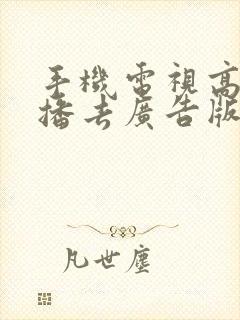 手機電視高
播去廣告版
凡世塵